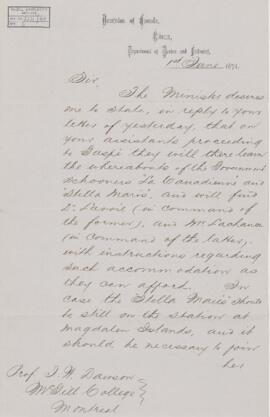 Dominion of Canada,
Ottawa,
Department of Marine and Fisheries,
1st June 1871.
Sir,
The Minister desires
me to state, in reply to your
letter of yesterday, that on
your assistants proceeding
to Gaspé they will there learn
the whereabouts of the Government
Schooners "La Canadienne and
"Stella Maris", and will find
Dr. Lavoie (in command of
the former), and Mr. Lachance
(in command of the latter,
with instructions regarding
such accommodation as
they can afford. In
case the Stella Maris should
be still on the station at
Magdalen Islands, and it
should be necessary to join
her
Prof. J. W. Dawson
McGill College
Montreal